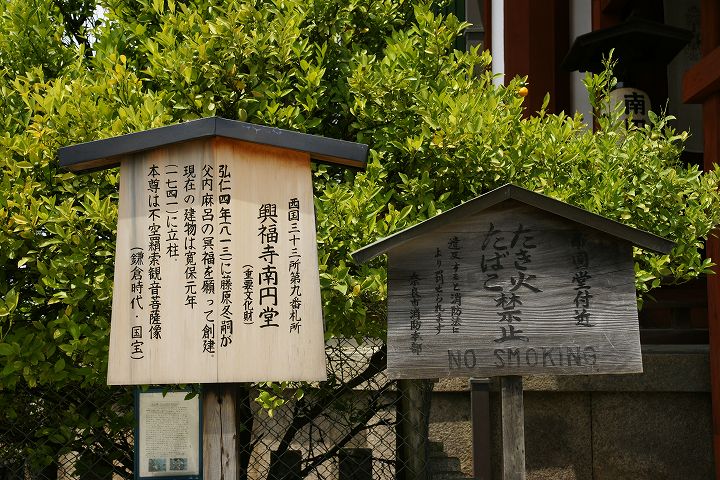 西国三十三所第九番札所
興福寺南円堂
(重要文化財)
弘仁四年(八一三)に藤原冬嗣が
父内麻呂の冥福を願って創建
現在の建物は寛保元年
(一七四一)に立柱.
本尊は不空羂索観音菩薩像
(鎌倉時代・国宝)
南円堂付近
たき火禁止
たばこ
違反すると消防法に
より罰せられます
奈良市消防本部
NO SMOKING
南